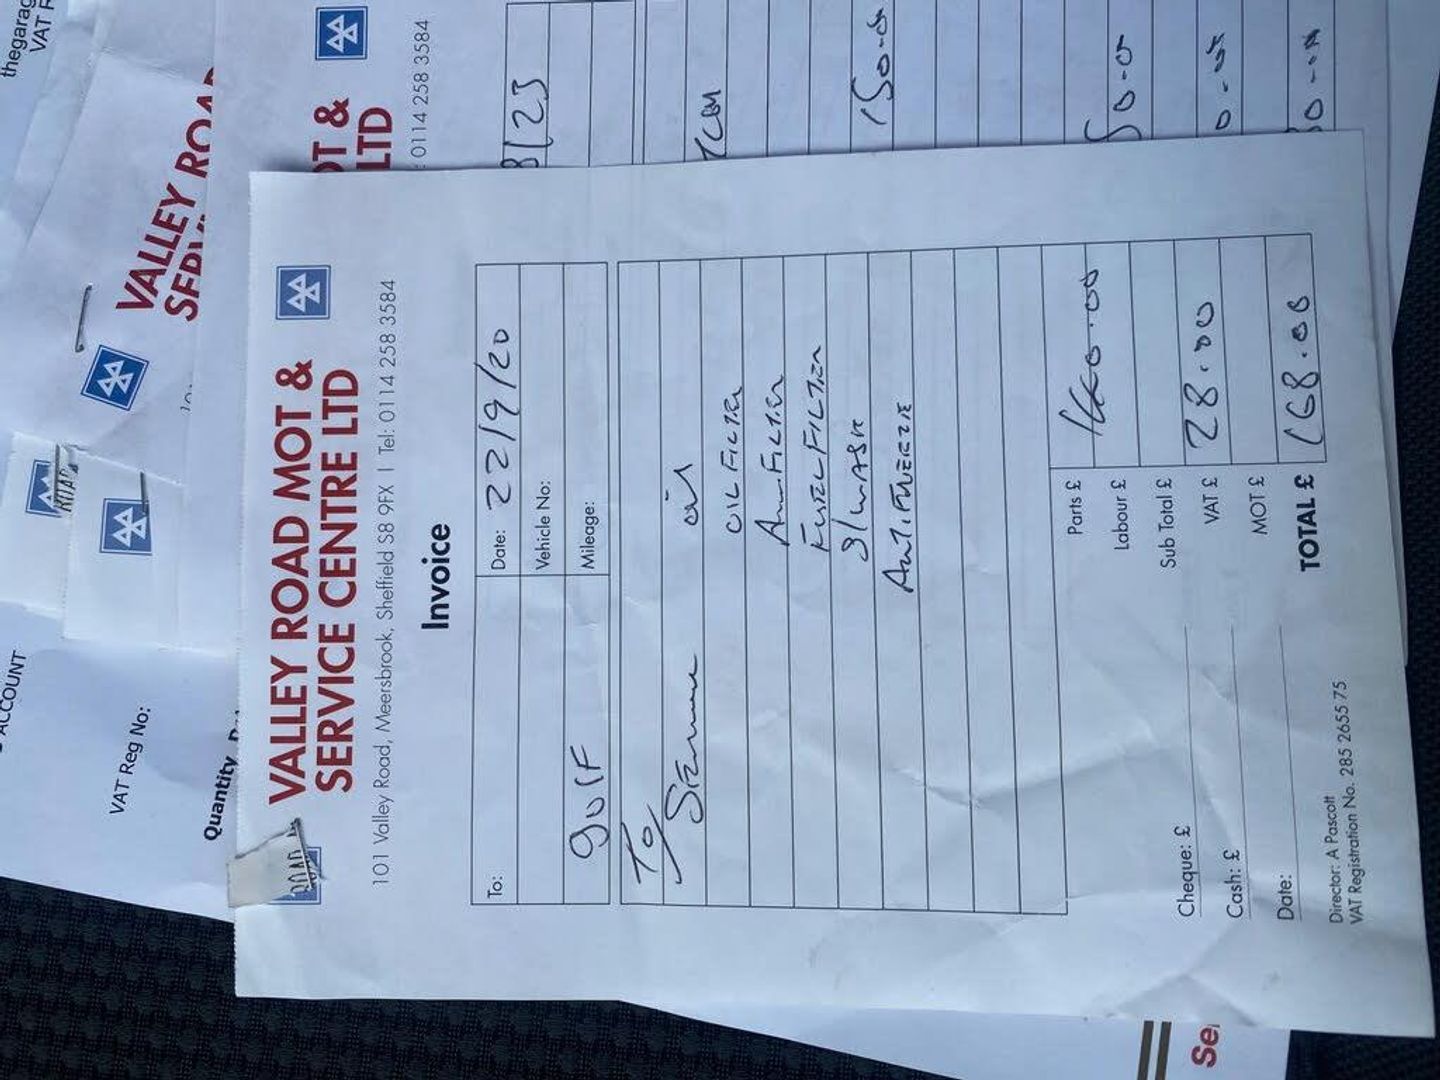 VALLEY ROAD MOT &
SERVICE CENTRE LTD
101 Valley Road, Meersbrook, Sheffield S8 9FX | Tel: 0114 258 3584
Invoice
To: Date: 22/9/20
Vehicle No:
golf Mileage:
To
oil
OIL FILTER
AIR FILTER
FUEL FILTER
S/WASH
ANTIFREEZE
Parts £ 140.00
Labour £
Sub Total £
Cheque: £ VAT £ 28.00
Cash: £ MOT £
Date: TOTAL £ 168.00
Director: A Pascott
VAT Registration No. 285 2655 75
OT &
LTD
: 0114 258 3584
8/23
150.00
VALLEY ROAD
SERVI
ROAD
ROAD
thegarag
VAT R
ACCOUNT
VAT Reg No:
Quantity
Se